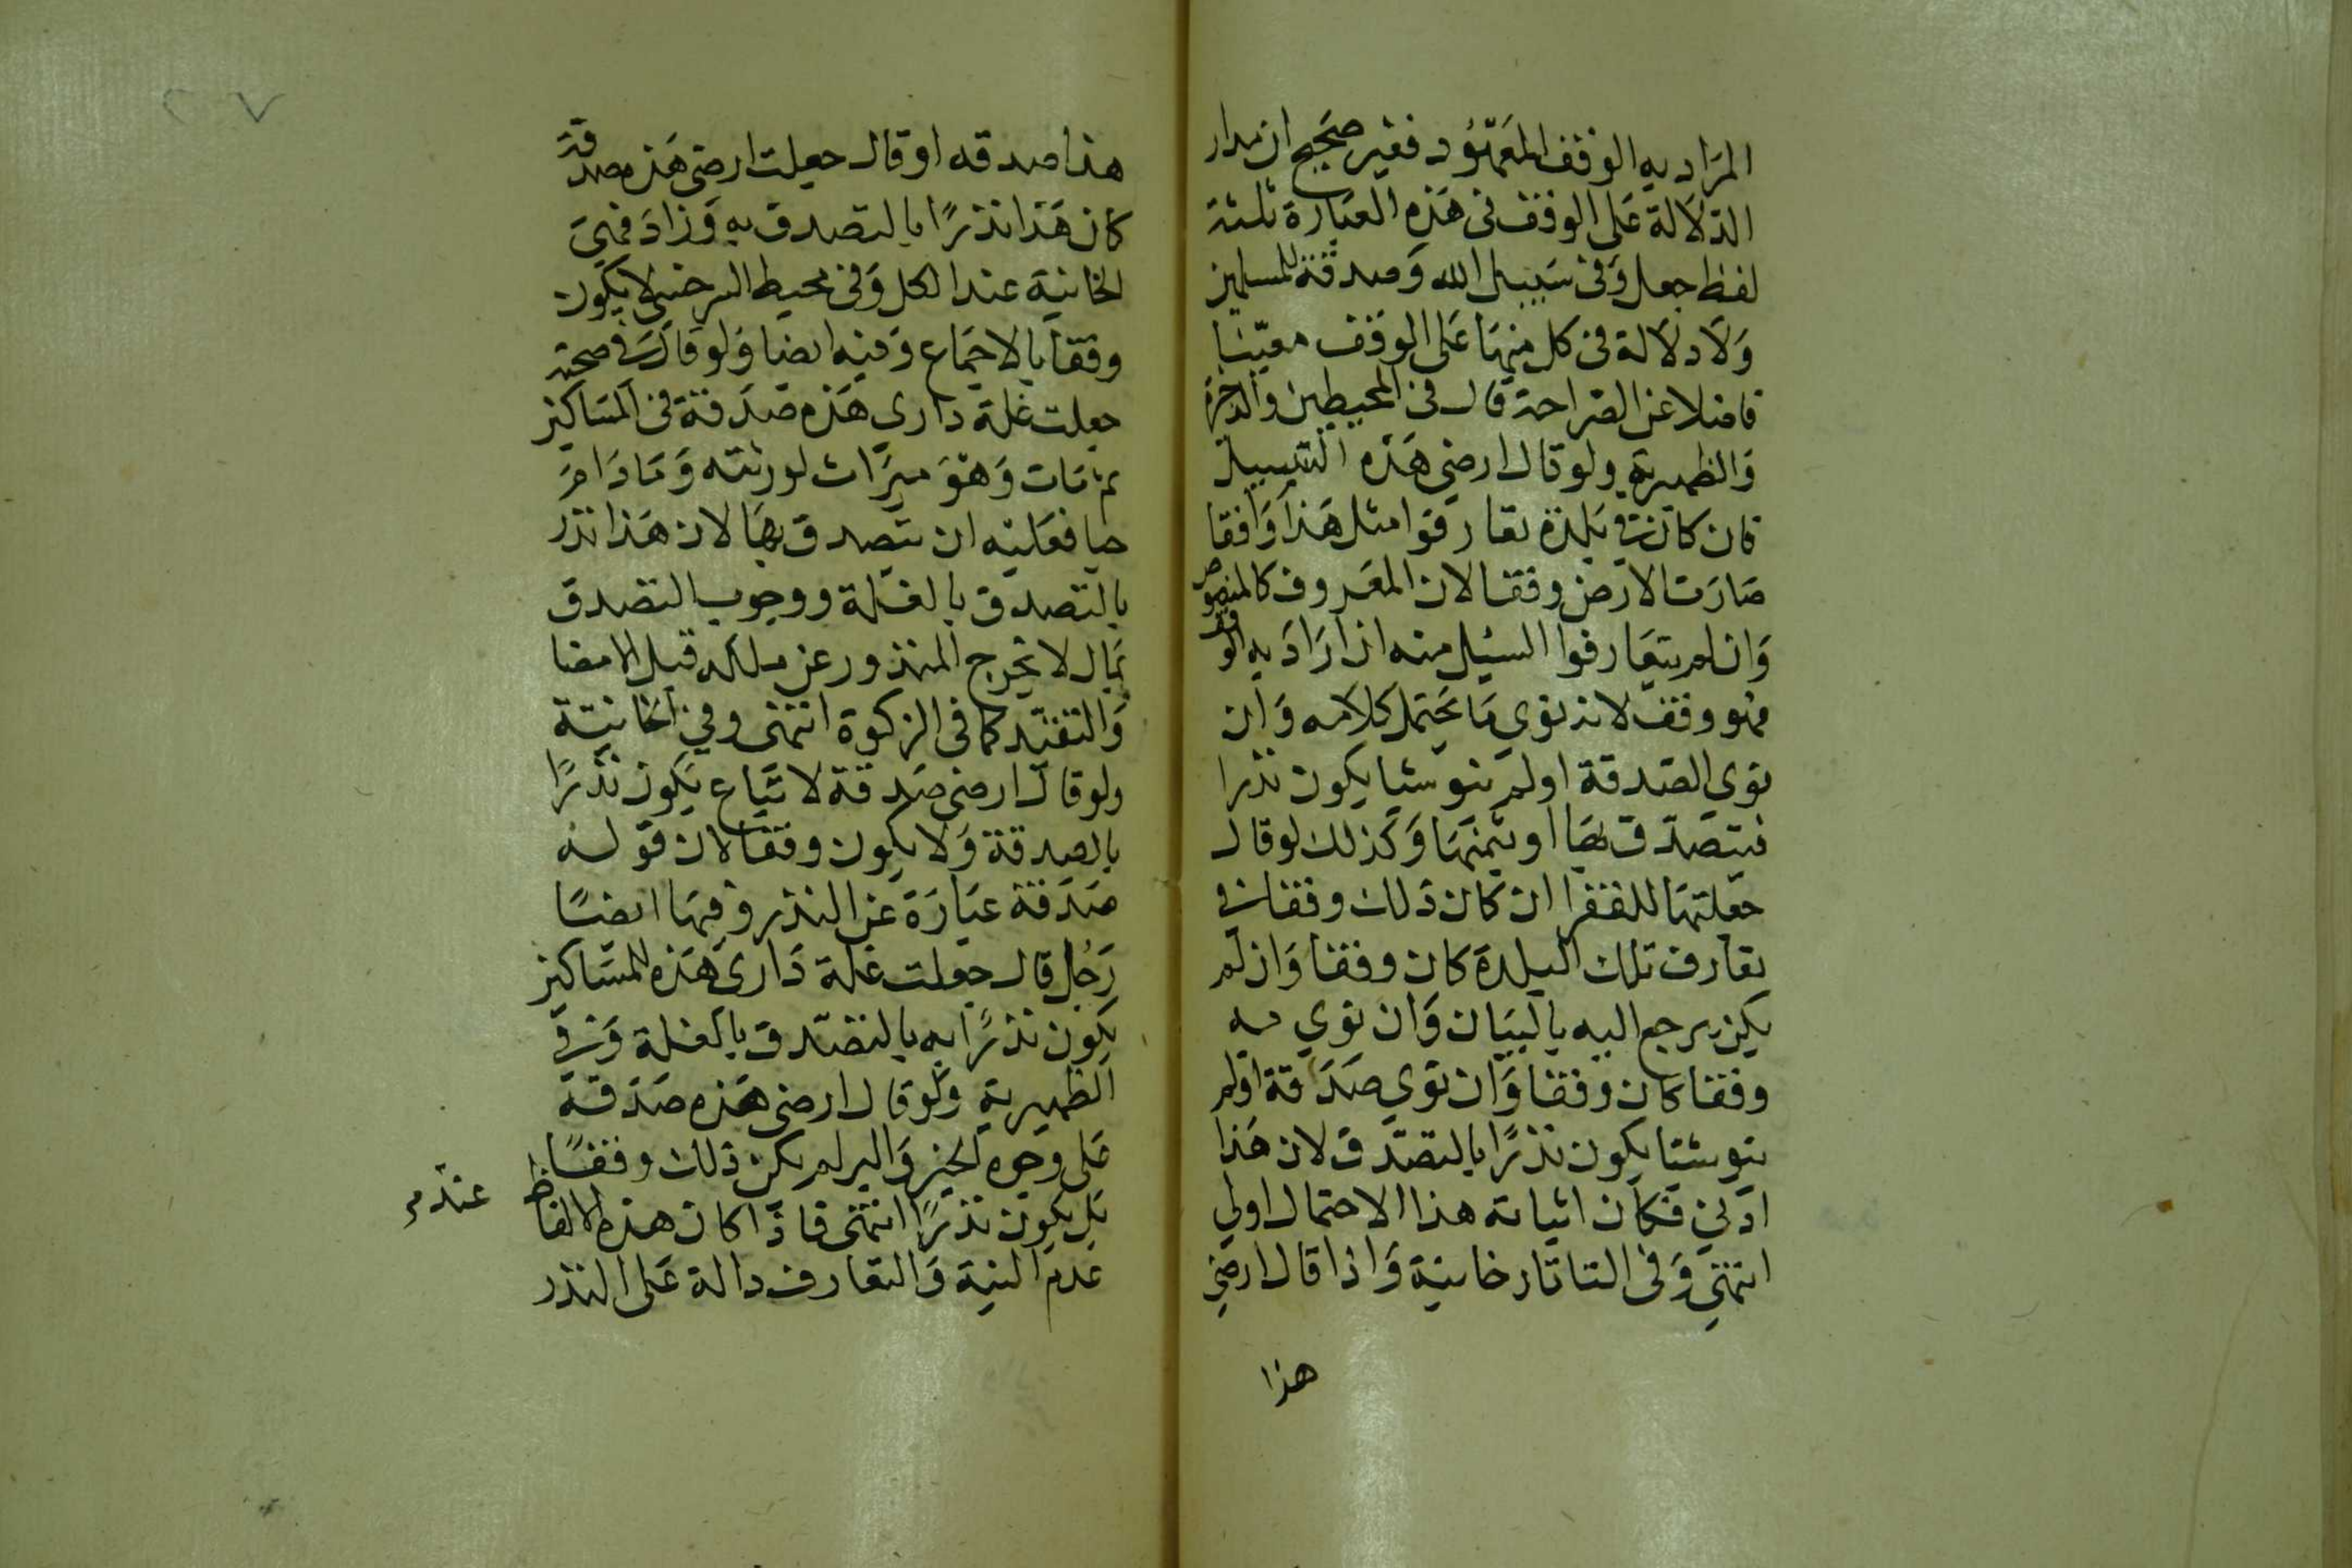 المراد به الوقف المعهود فغير صحيح ان مدار
الدلالة على الوقف فى هذه العبارة ثلثة
لفظ جعل وفى سبيل الله وصدقة للمسلمين
ولا دلالة فى كل منها على الوقف معينا
فاضلا عن الصراحة قال فى المحيطين والذخيرة
والظهيرية ولو قال ارضى هذه السبيل
فان كان فى بلدة تعارفوا مثل هذا وقفا
صارت الارض وقفا لان المعروف كالمنصوص
وان لم يتعارفوا السبيل منه ان اراد به الوقف
فهو وقف لانه نوى ما يحتمل كلامه وان
نوى الصدقة اولم ينو شيا يكون نذرا
فيتصدق بها او بثمنها وكذلك لو قال
جعلتها للفقرا ان كان ذلك وقفا فى
تعارف تلك البلدة كان وقفا وان لم
يكن يرجع اليه بالبيان وان نوى به
وقفا كان وقفا وان نوى صدقة اولم
ينو شيا يكون نذرا بالتصدق لان هذا
ادنى فكان اثباته هذا الاحتمال اولى
انتهى وفى التاتارخانية واذا قال ارضى
هذا
هذا صدقه او قال جعلت ارضى هذه صدقة
كان هذا نذرا بالتصدق به وزاد فى
الخانية عند الكل وفى محيط السرخسى لا يكون
وقفا بالاجماع وفيه ايضا ولو قال فى صحته
جعلت غلة دارى هذه صدقة فى المساكين
ثم مات وهو ميراث لورثته وما دام
حيا فعليه ان يتصدق بها لان هذا نذر
بالتصدق بالغلة ووجوب التصدق
بمال لا يخرج المنذور عن ملكه قبل الامضا
والتنفيذ كما فى الزكوة انتهى وفى الخانية
ولو قال ارضى صدقة لا تباع يكون نذرا
بالصدقة ولا يكون وقفا لان قوله
صدقة عبارة عن النذر وفيها ايضا
رجل قال جعلت غلة دارى هذه للمساكين
يكون نذرا به بالتصدق بالغلة وفى
الظهيرية ولو قال ارضى هذه صدقة
على وجوه الخير والبر لم يكن ذلك وقفا
بل يكون نذرا انتهى فاذا كان هذه الالفاظ
عند
عدم النية والتعارف دالة على النذر